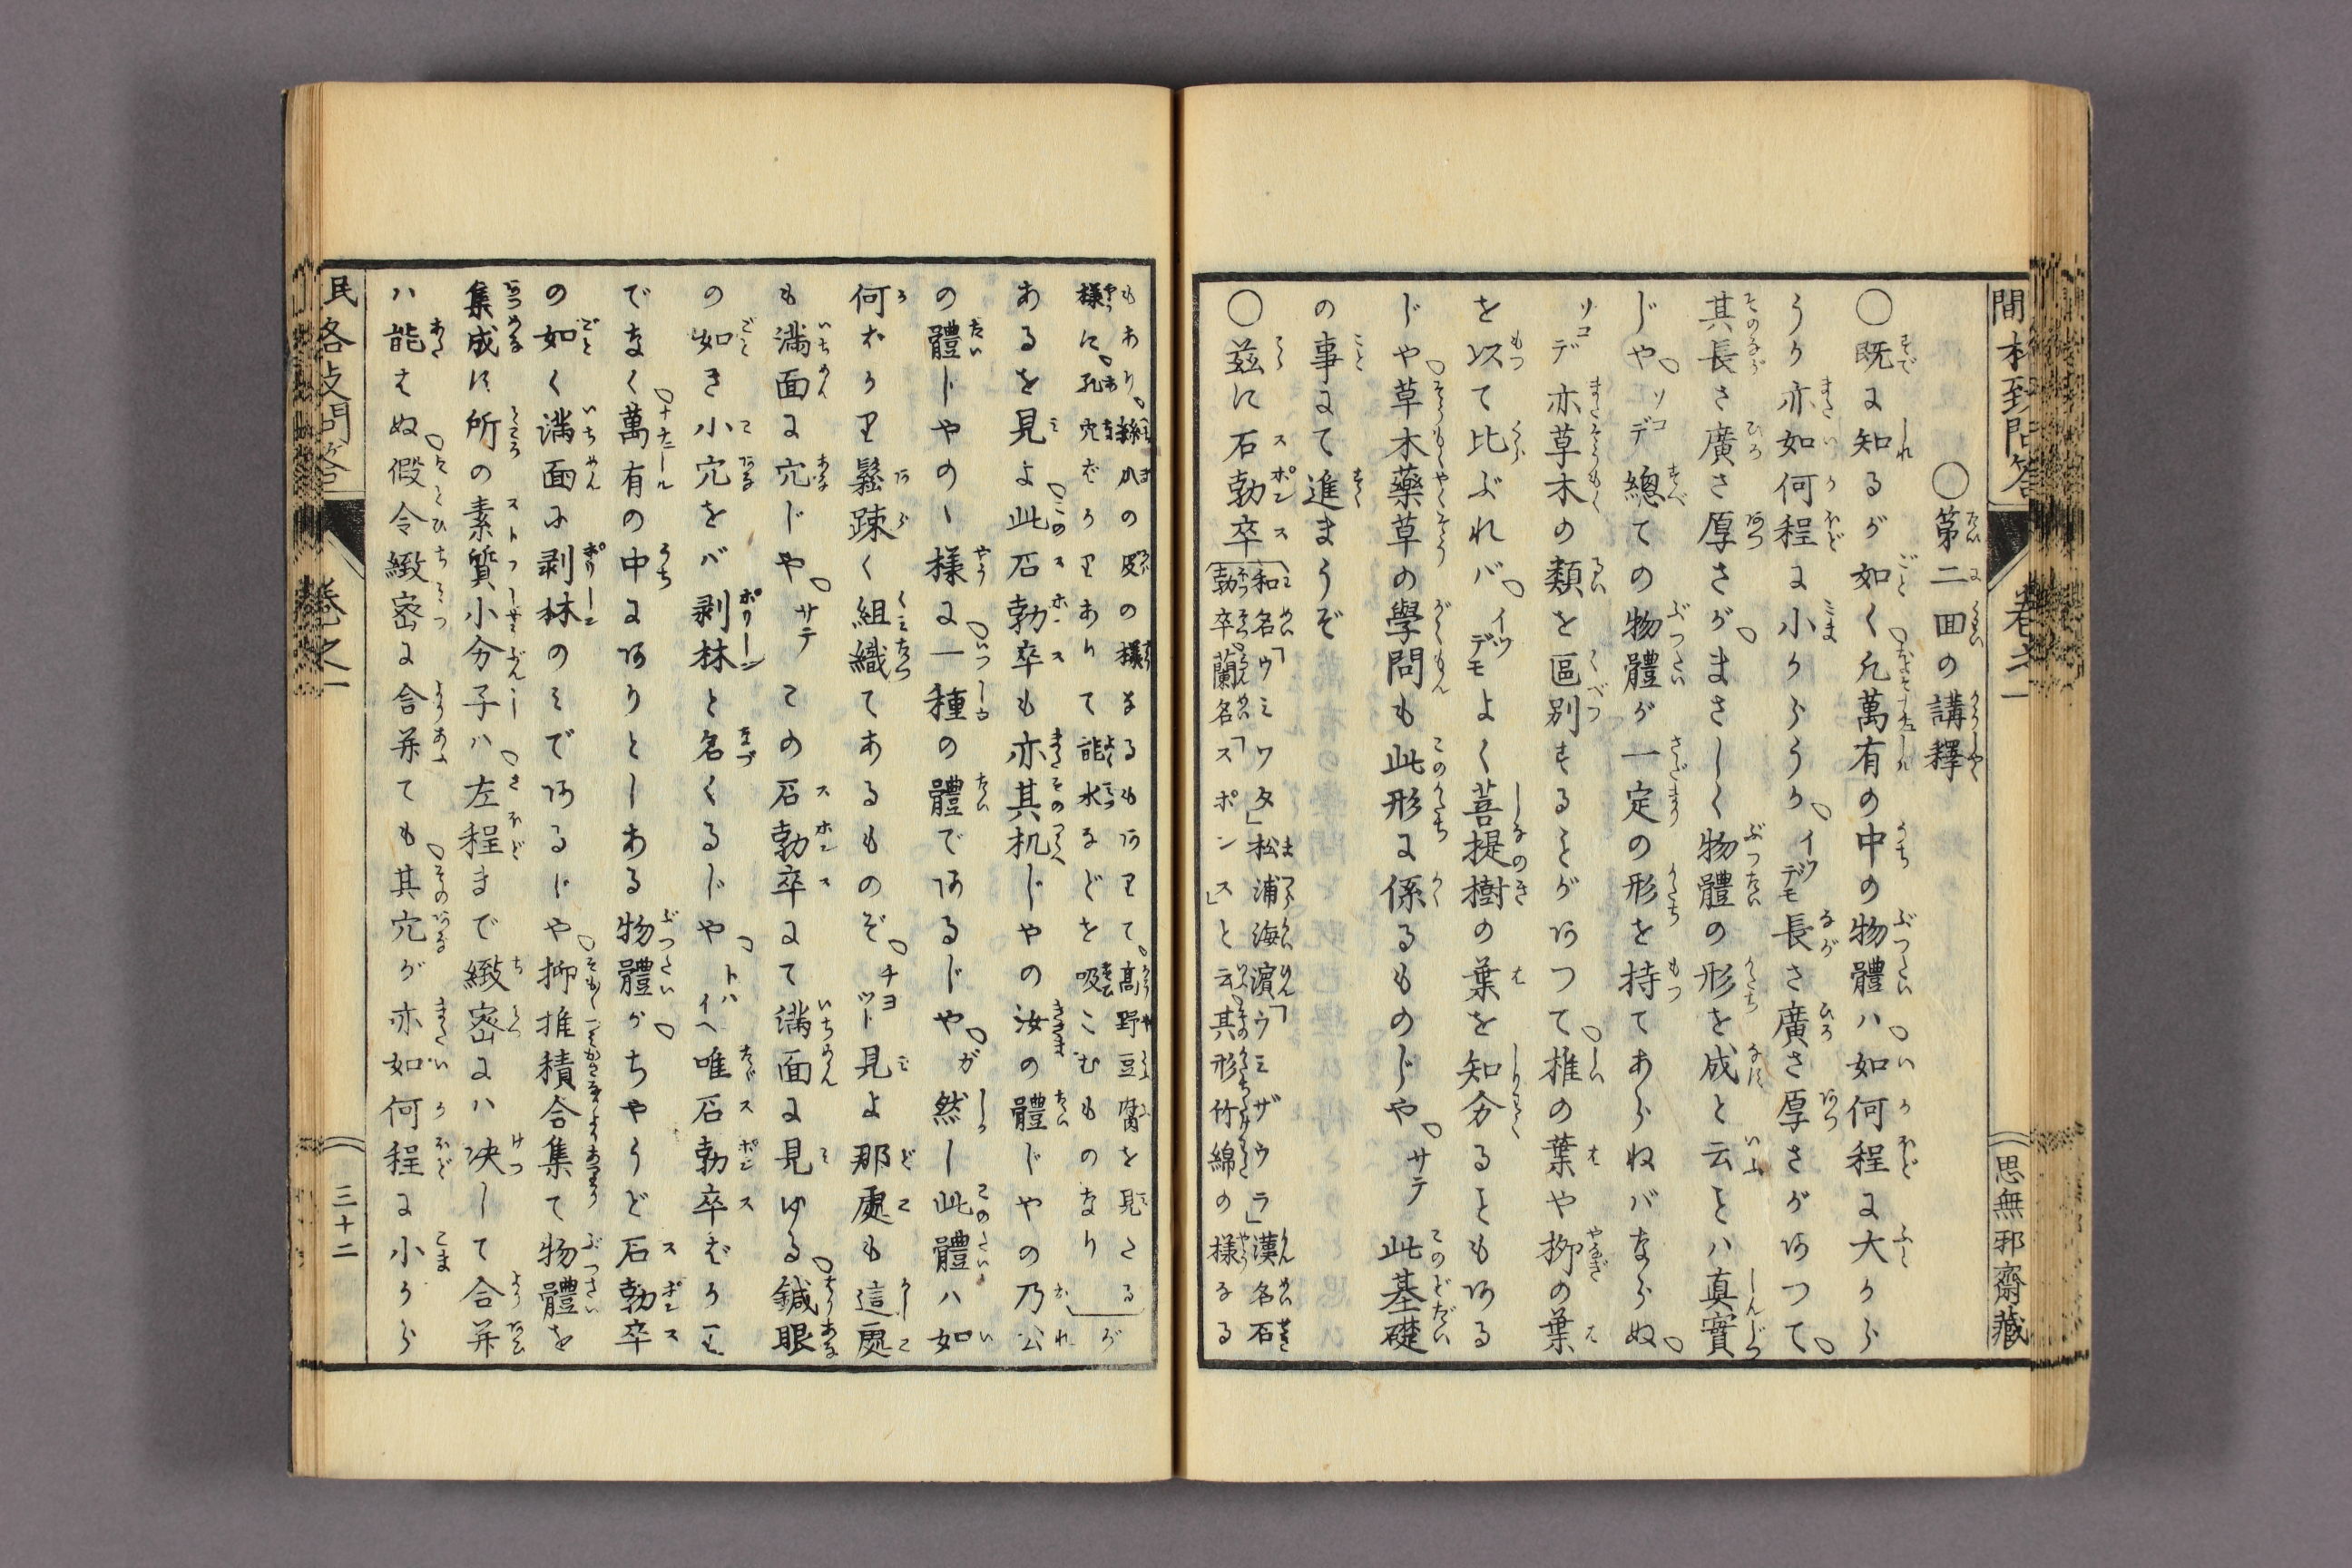 ○第二囬の講釋
○既に知るが如く凢萬有の中の物體ハ如何程に大から
うか亦如何程に小からうがイツデモ長さ廣さ厚さがあつて
其長さ廣さ厚さがまさしく物體の形を成と云ことハ真實
じやソコデ總ての物體が一定の形を持てあらねバならぬ
ソコデ亦草木の類を區別することがあつて椎の葉や柳の葉
を以て比ぶれバイツデモよく菩提樹の葉を知分ることもある
じや草木藥草の學問も此形に係るものじやサテ此基礎
の事にて進まうぞ
○茲に石勃卒
和名「ウミワタ」松浦海濵「ウミザウラ」漢名石
勃卒蘭名「スポンス」と云其形竹綿の様なる
もありの皮の様なるもありて高野豆腐を見たる
様に孔穴ばかりありて能水などを吸こむものなり
が
あるを見よ此石勃卒も亦其机じやの汝の體じやの乃公
の體じやのゝ様に一種の體であるじやガ然し此體ハ如
何ばかり鬆踈く組織てあるものぞチヨツト見よ那處も這處
も満面に穴じやサテこの石勃卒にて満面に見ゆる鍼眼
の如き小穴をバ剥林と名くるじやトハイヘ唯石勃卒ばかり
でなく萬有の中にありとしある物體がちやうど石勃卒
の如く満面に剥林のみであるじや抑推積合集て物體を
集成に所の素質小分子ハ左程まで緻密にハ决して合并
ハ能えぬ假令緻密に合并ても其穴が亦如何程に小から
民各文問答
巻之一
三十二
巻之一
思無邪齋藏